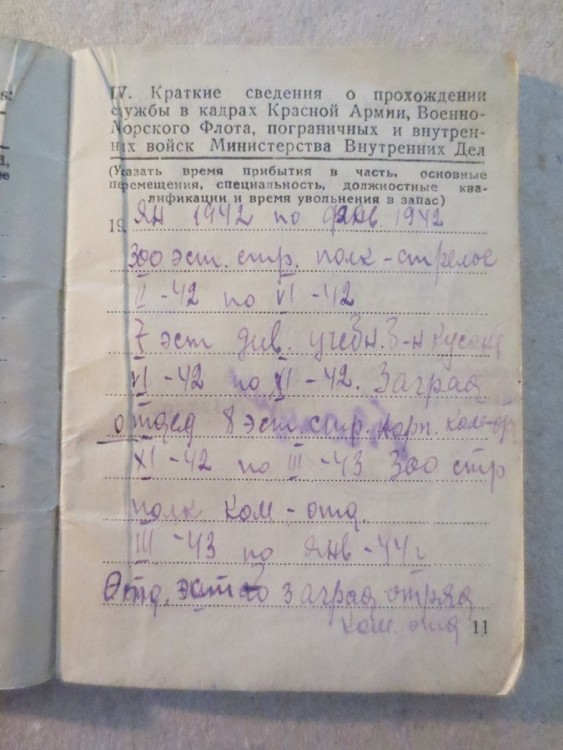 IV. Краткие сведения о прохождении
службы в кадрах Красной Армии, Военно-
Морского Флота, пограничных и внутрен-
них войск Министерства Внутренних Дел
(Указать время прибытия в часть, основные
перемещения, специальность, должностные ква-
лификации и время увольнения в запас)
19 Янв 1942 по 1942
300 эст. стр. полк - стрелок
II -42 по VI -42
7 эст див. учебн. З-н
VI -42 по XI -42. Заград
отдед 8 эст стр. корп. ком-
XI -42 по III -43 300 стр
полк ком - отд.
III -43 по Янв -44г
Отд. эст заград отряд
ком. отд
11